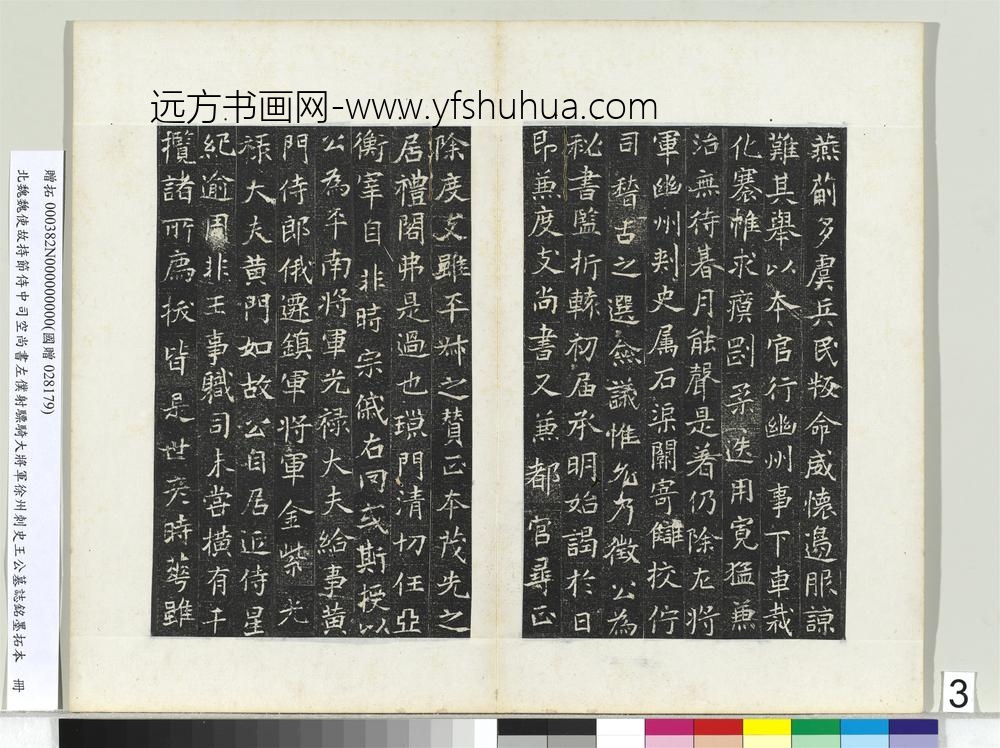 远方书画网-www.yfshuhua.com
燕薊多虞兵民叛命威懷邊服諒
難其舉以本官行幽州事下車裁
化褰帷求瘼剛柔迭用寬猛兼
治無待暮月能聲是著仍除左將
軍幽州刺史属石渠闕寄讎挍佇
司古之選僉議惟允乃徵公為
秘書監折轅初届承明始謁於日
即兼度支尚書又兼都官尋正
除度支雖平叔之賛正本茂先之
居禮閣弗是過也瑣門清切任亞
衡宰自非時宗右罔或斯授以
公為平南將軍光禄大夫給事黄
門侍郎俄遷鎮軍將軍金紫光
禄大夫黄門如故公自居近侍星
紀逾周非王事職司未嘗横有干
攬諸所薦拔皆是世彦時華雖
贈拓 000382N000000000(國贈 028179)
北魏魏使故持節侍中司空尚書左僕射驃騎大將軍徐州刺史王公墓誌銘墨拓本 冊
3